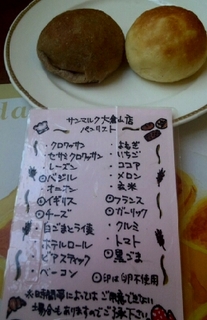 サンマルク大倉山店
パンリスト
・クロワッサン
・セサミクロワッサン
・レーズン
◎バジル
・オニオン
◎イギリス
◎チーズ
・白ごまとうふ
・ホテルロール
・ベーコン
・よもぎ
・いちご
・ココア
・メロン
・玄米
◎フランス
◎ガーリック
・クルミ
・トマト
◎黒ごま
◎印は卵不使用
※時間帯によってはご用意できない
場合もありますのでご了承下さい